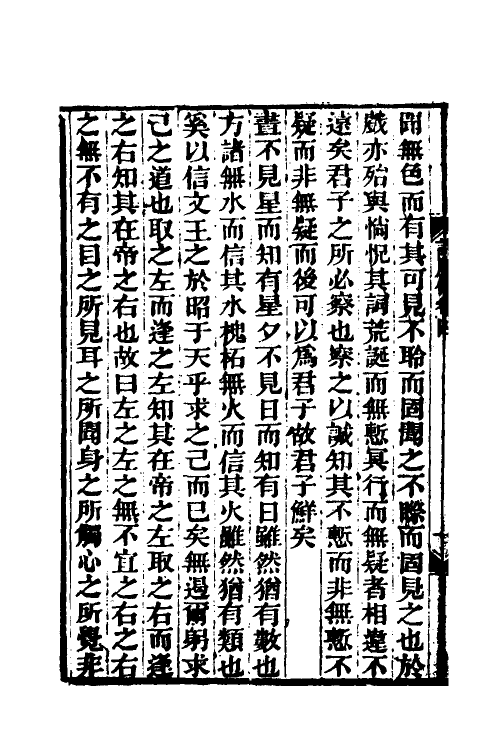 聞無色而有其可見不聆而固聞之不瞭而固見之也於
戲亦殆與惝怳其詞荒誕而無慙冥行而無疑者相違不
遠矣君子之所必察也察之以誠知其不慙而非無慙不
疑而非無疑而後可以爲君子故君子鮮矣
晝不見星而知有星夕不見日而知有日雖然猶有數也
方諸無水而信其水槐柘無火而信其火雖然猶有類也
奚以信文王之於昭于天乎求之己而已矣無遏爾躬求
己之道也取之左而逢之左知其在帝之左取之右而逢
之右知其在帝之右也故曰左之左之無不宜之右之右
之無不有之目之所見耳之所聞身之所觸心之所覺非